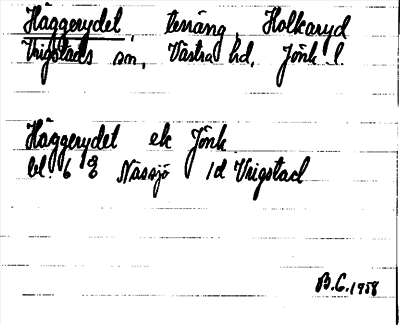 Häggerydet, terräng, Holkaryd
Vrigstads sn, Västra hd, Jönk l.
Häggerydet ek Jönk
bl. 6 8 Nässjö 1d Vrigstad
B.G. 1958